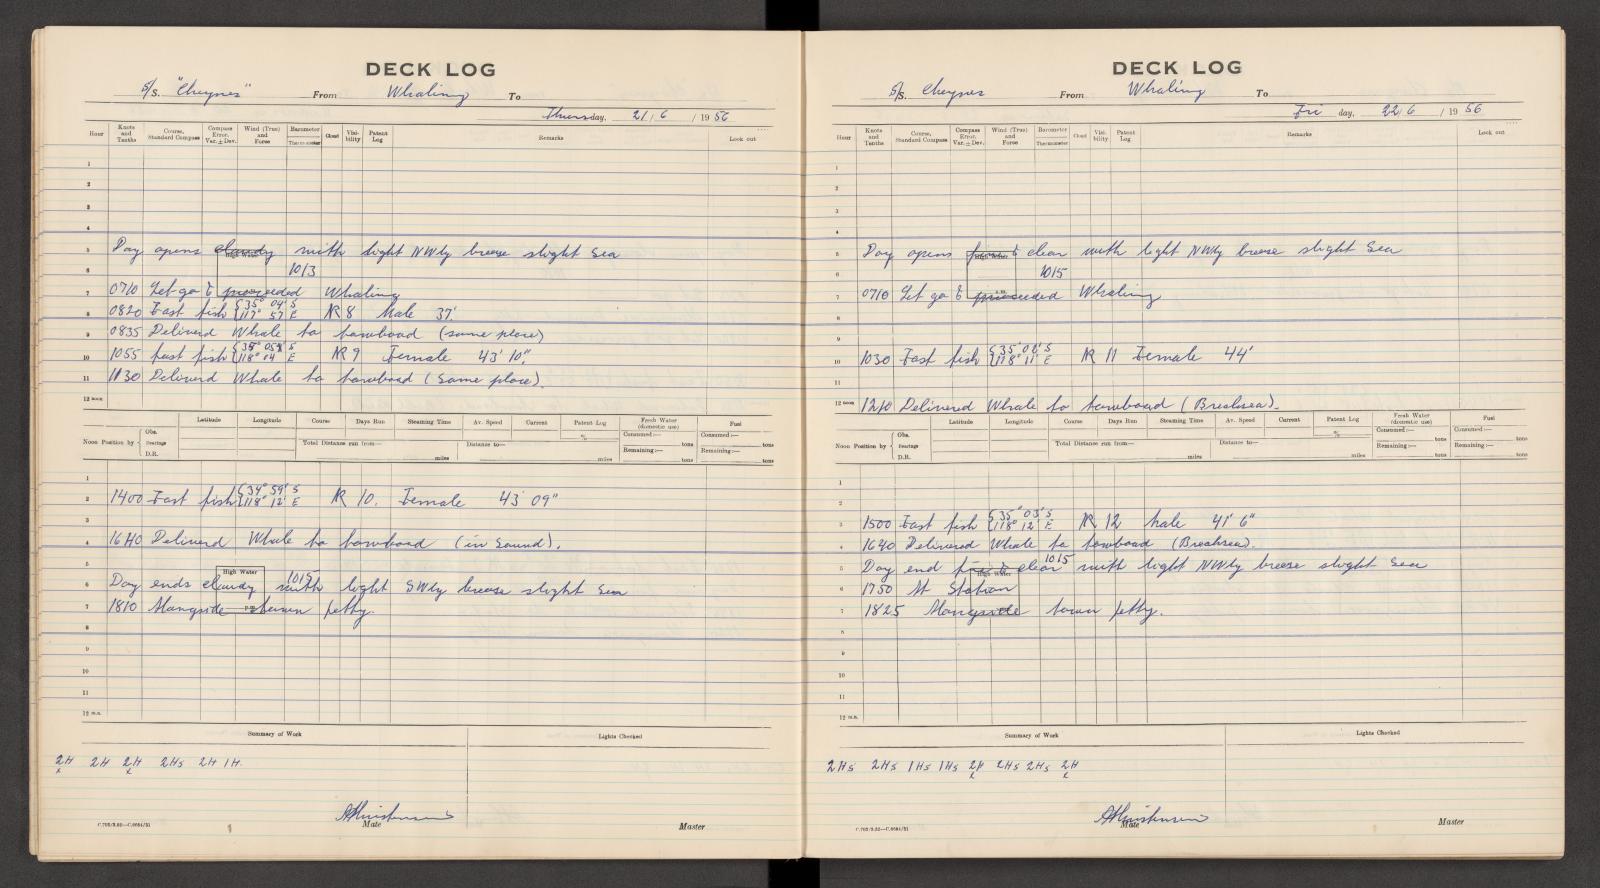 DECK LOG
S/S. "Cheynes" From Whaling To
Thursday, 21 / 6 / 1956
Hour Knots and Tenths Course, Standard Compass Compass Error. Var. ± Dev. Wind (True) and Force Barometer Thermometer Cloud Visibility Patent Log Remarks Look out
1
2
3
4
5 Day opens cloudy with light NWly breeze slight Sea
6 1013
7 0710 Let go & proceeded Whaling
8 0820 Fast fish { 35° 04' S 117° 57' E NR 8 Male 37'
9 0835 Deliverd Whale to towboad (same place)
10 1055 fast fish { 35° 05' S 118° 04' E NR 9 Female 43' 10"
11 1130 Deliverd Whale to towboad (same place).
12 noon
Latitude Longitude Course Days Run Steaming Time Av. Speed Current Patent Log % Fresh Water (domestic use) Fuel
Noon Position by { Obs. Bearings D.R. Total Distance run from— miles Distance to— miles Consumed:— tons Remaining:— tons Consumed:— tons Remaining:— tons
1
2 1400 Fast fish { 34° 59' S 118° 12' E NR 10. Female 43' 09"
3
4 1640 Deliverd Whale to towboad (in Sound).
5 High Water
6 Day ends cloudy with light SWly breeze slight Sea 1015
7 1810 Alongside town jetty.
8
9
10
11
12 m.n.
Summary of Work Lights Checked
2H x 2H 2H x 2Hs 2H 1H.
AChristensen
Mate Master
C.702/3.52—C.6684/51
DECK LOG
S/S. Cheynes From Whaling To
Fri day, 22 6 / 1956
Hour Knots and Tenths Course, Standard Compass Compass Error. Var. ± Dev. Wind (True) and Force Barometer Thermometer Cloud Visibility Patent Log Remarks Look out
1
2
3
4
5 Day opens fine & clear with light NWly breeze slight Sea
6 1015
7 0710 Let go & proceeded Whaling
8
9
10 1030 Fast fish { 35° 02' S 118° 11' E NR 11 Female 44'
11
12 noon 1210 Deliverd Whale to towboad (Breaksea).
Latitude Longitude Course Days Run Steaming Time Av. Speed Current Patent Log % Fresh Water (domestic use) Fuel
Noon Position by { Obs. Bearings D.R. Total Distance run from— miles Distance to— miles Consumed:— tons Remaining:— tons Consumed:— tons Remaining:— tons
1
2
3 1500 Fast fish { 35° 03' S 118° 12' E NR 12 Male 41' 6"
4 1640 Deliverd Whale to towboad (Breaksea).
5 Day end fine & clear with light NWly breeze slight Sea 1015
High Water
6 1750 At Station
7 1825 Alongside town jetty.
8
9
10
11
12 m.n.
Summary of Work Lights Checked
2Hs 2Hs 1Hs 1Hs 2H x 2Hs 2Hs 2H x
AChristensen
Mate Master
C.702/3.52—C.6684/51